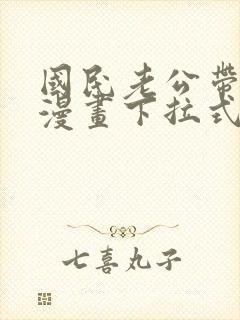 國民老公帶
漫畫下拉式
七喜丸子